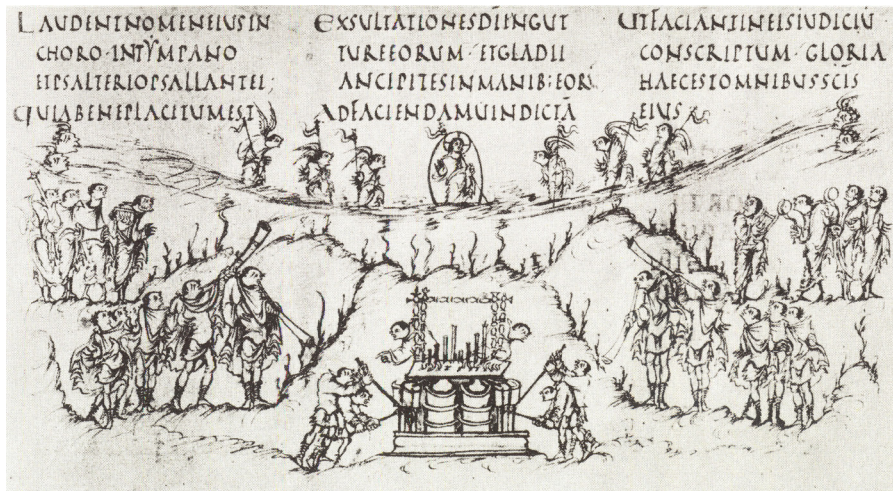 LAUDENT NOMEN EIUS IN
CHORO · IN TYMPANO
ET PSALTERIO PSALLANT EI;
QUIA BENEPLACITUM EST
EXSULTATIONES DI IN GUT
TURE EORUM · ET GLADII
ANCIPITES IN MANIB; EORU
AD FACIENDAM UINDICTĀ
UT FACIANT IN EIS IUDICIŪ
CONSCRIPTUM · GLORIA
HAEC EST OMNIBUS SCĪS
EIUS